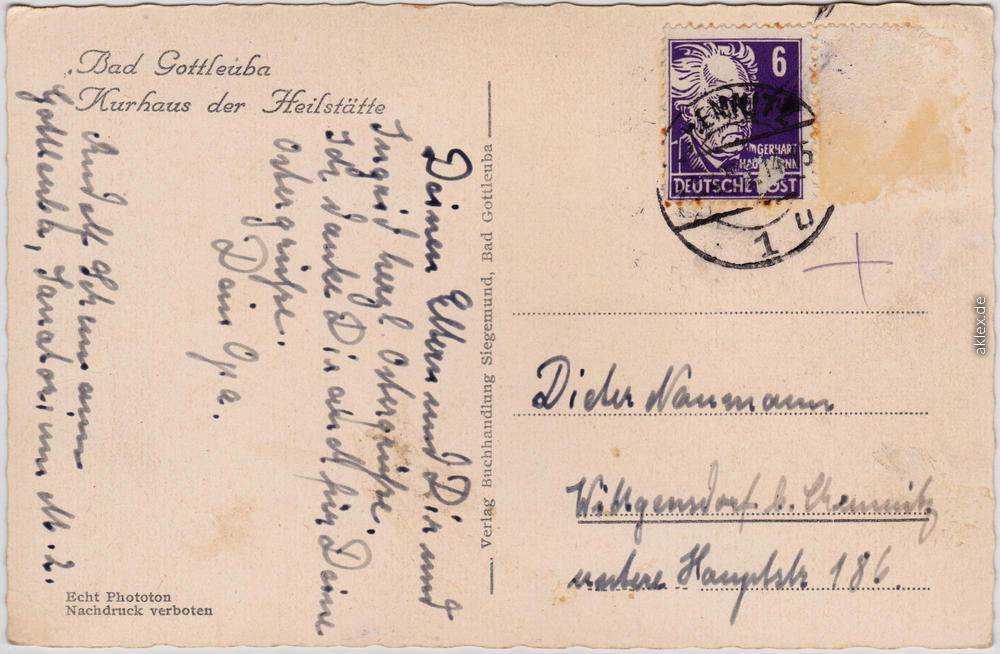 Bad Gottleuba
Kurhaus der Heilstätte
Deinen Eltern und Dir und
Ingrid herzl. Ostergrüsse.
Ich danke Dir auch für Deine
Ostergrüsse.
Dein Opa.
Rudolf
Gottleuba, Sanatorium M. 2.
Echt Phototon
Nachdruck verboten
Verlag Buchhandlung Siegemund, Bad Gottleuba
6
GERHART
DEUTSCHE POST
1
Dieter Naumann
Wittgensdorf b. Chemnitz
untere Hauptstr 186.
aklex.de